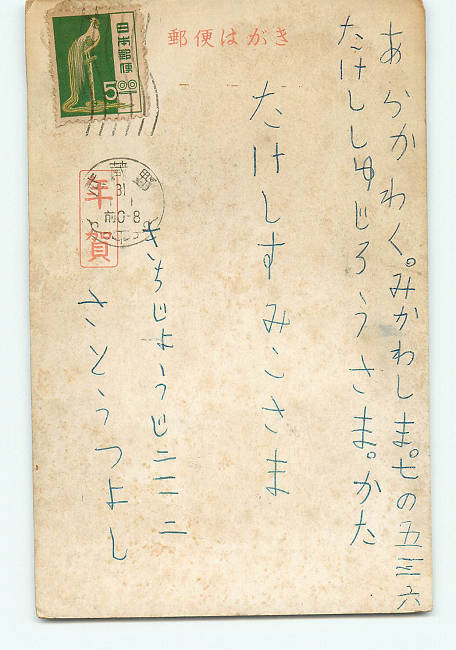 郵便はがき
日本郵便
5.00
あらかわく。みかわしま。七の五三六
たけししゆじろうさま。かた
たけしすみこさま
年賀
野
31
前0-8
きちじょうじ
さとうつよし